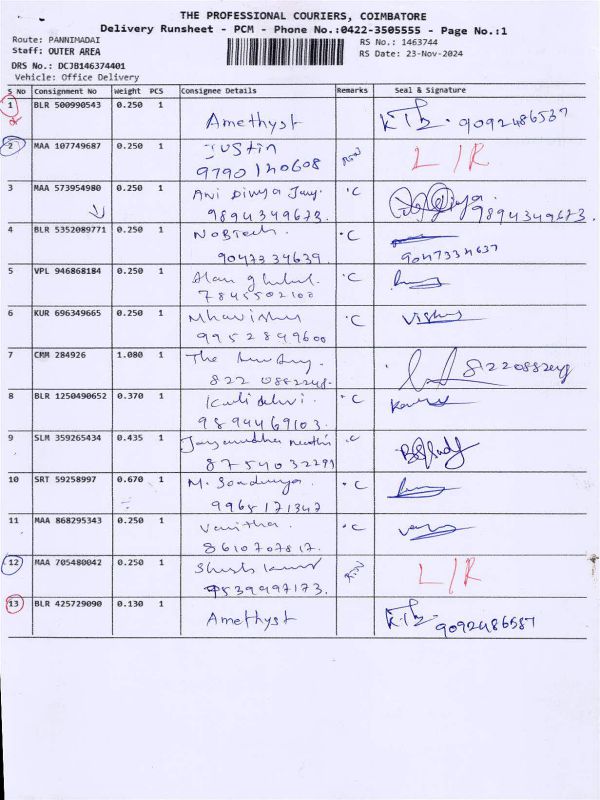 THE PROFESSIONAL COURIERS, COIMBATORE
Delivery Runsheet - PCM - Phone No.:0422-3505555 - Page No.:1
Route: PANNIMADAI
Staff: OUTER AREA
RS No.: 1463744
RS Date: 23-Nov-2024
DRS No.: DCJB146374401
Vehicle: Office Delivery
S No Consignment No Weight PCS Consignee Details Remarks Seal & Signature
1 BLR 500990543 0.250 1
Amethyst 9092486537
2 MAA 107749687 0.250 1 Justin L/R
9790120608
3 MAA 573954980 0.250 1 Ani Divya Jay. C
9894349673. 9894349673.
4 BLR 5352089771 0.250 1 C
9047334639. 9047334637
5 VPL 946868184 0.250 1 C
7845502100
6 KUR 696349665 0.250 1 C
9952849600
7 CMM 284926 1.080 1 The 8220882248
8220882248.
8 BLR 1250490652 0.370 1 C
9894469103.
9 SLM 359265434 0.435 1 C
8754032299
10 SRT 59258997 0.670 1 M. C
9965171347
11 MAA 868295343 0.250 1 Vanitha. C
8610707817.
12 MAA 705480042 0.250 1 L/R
9539497173.
13 BLR 425729090 0.130 1
Amethyst 9092486587